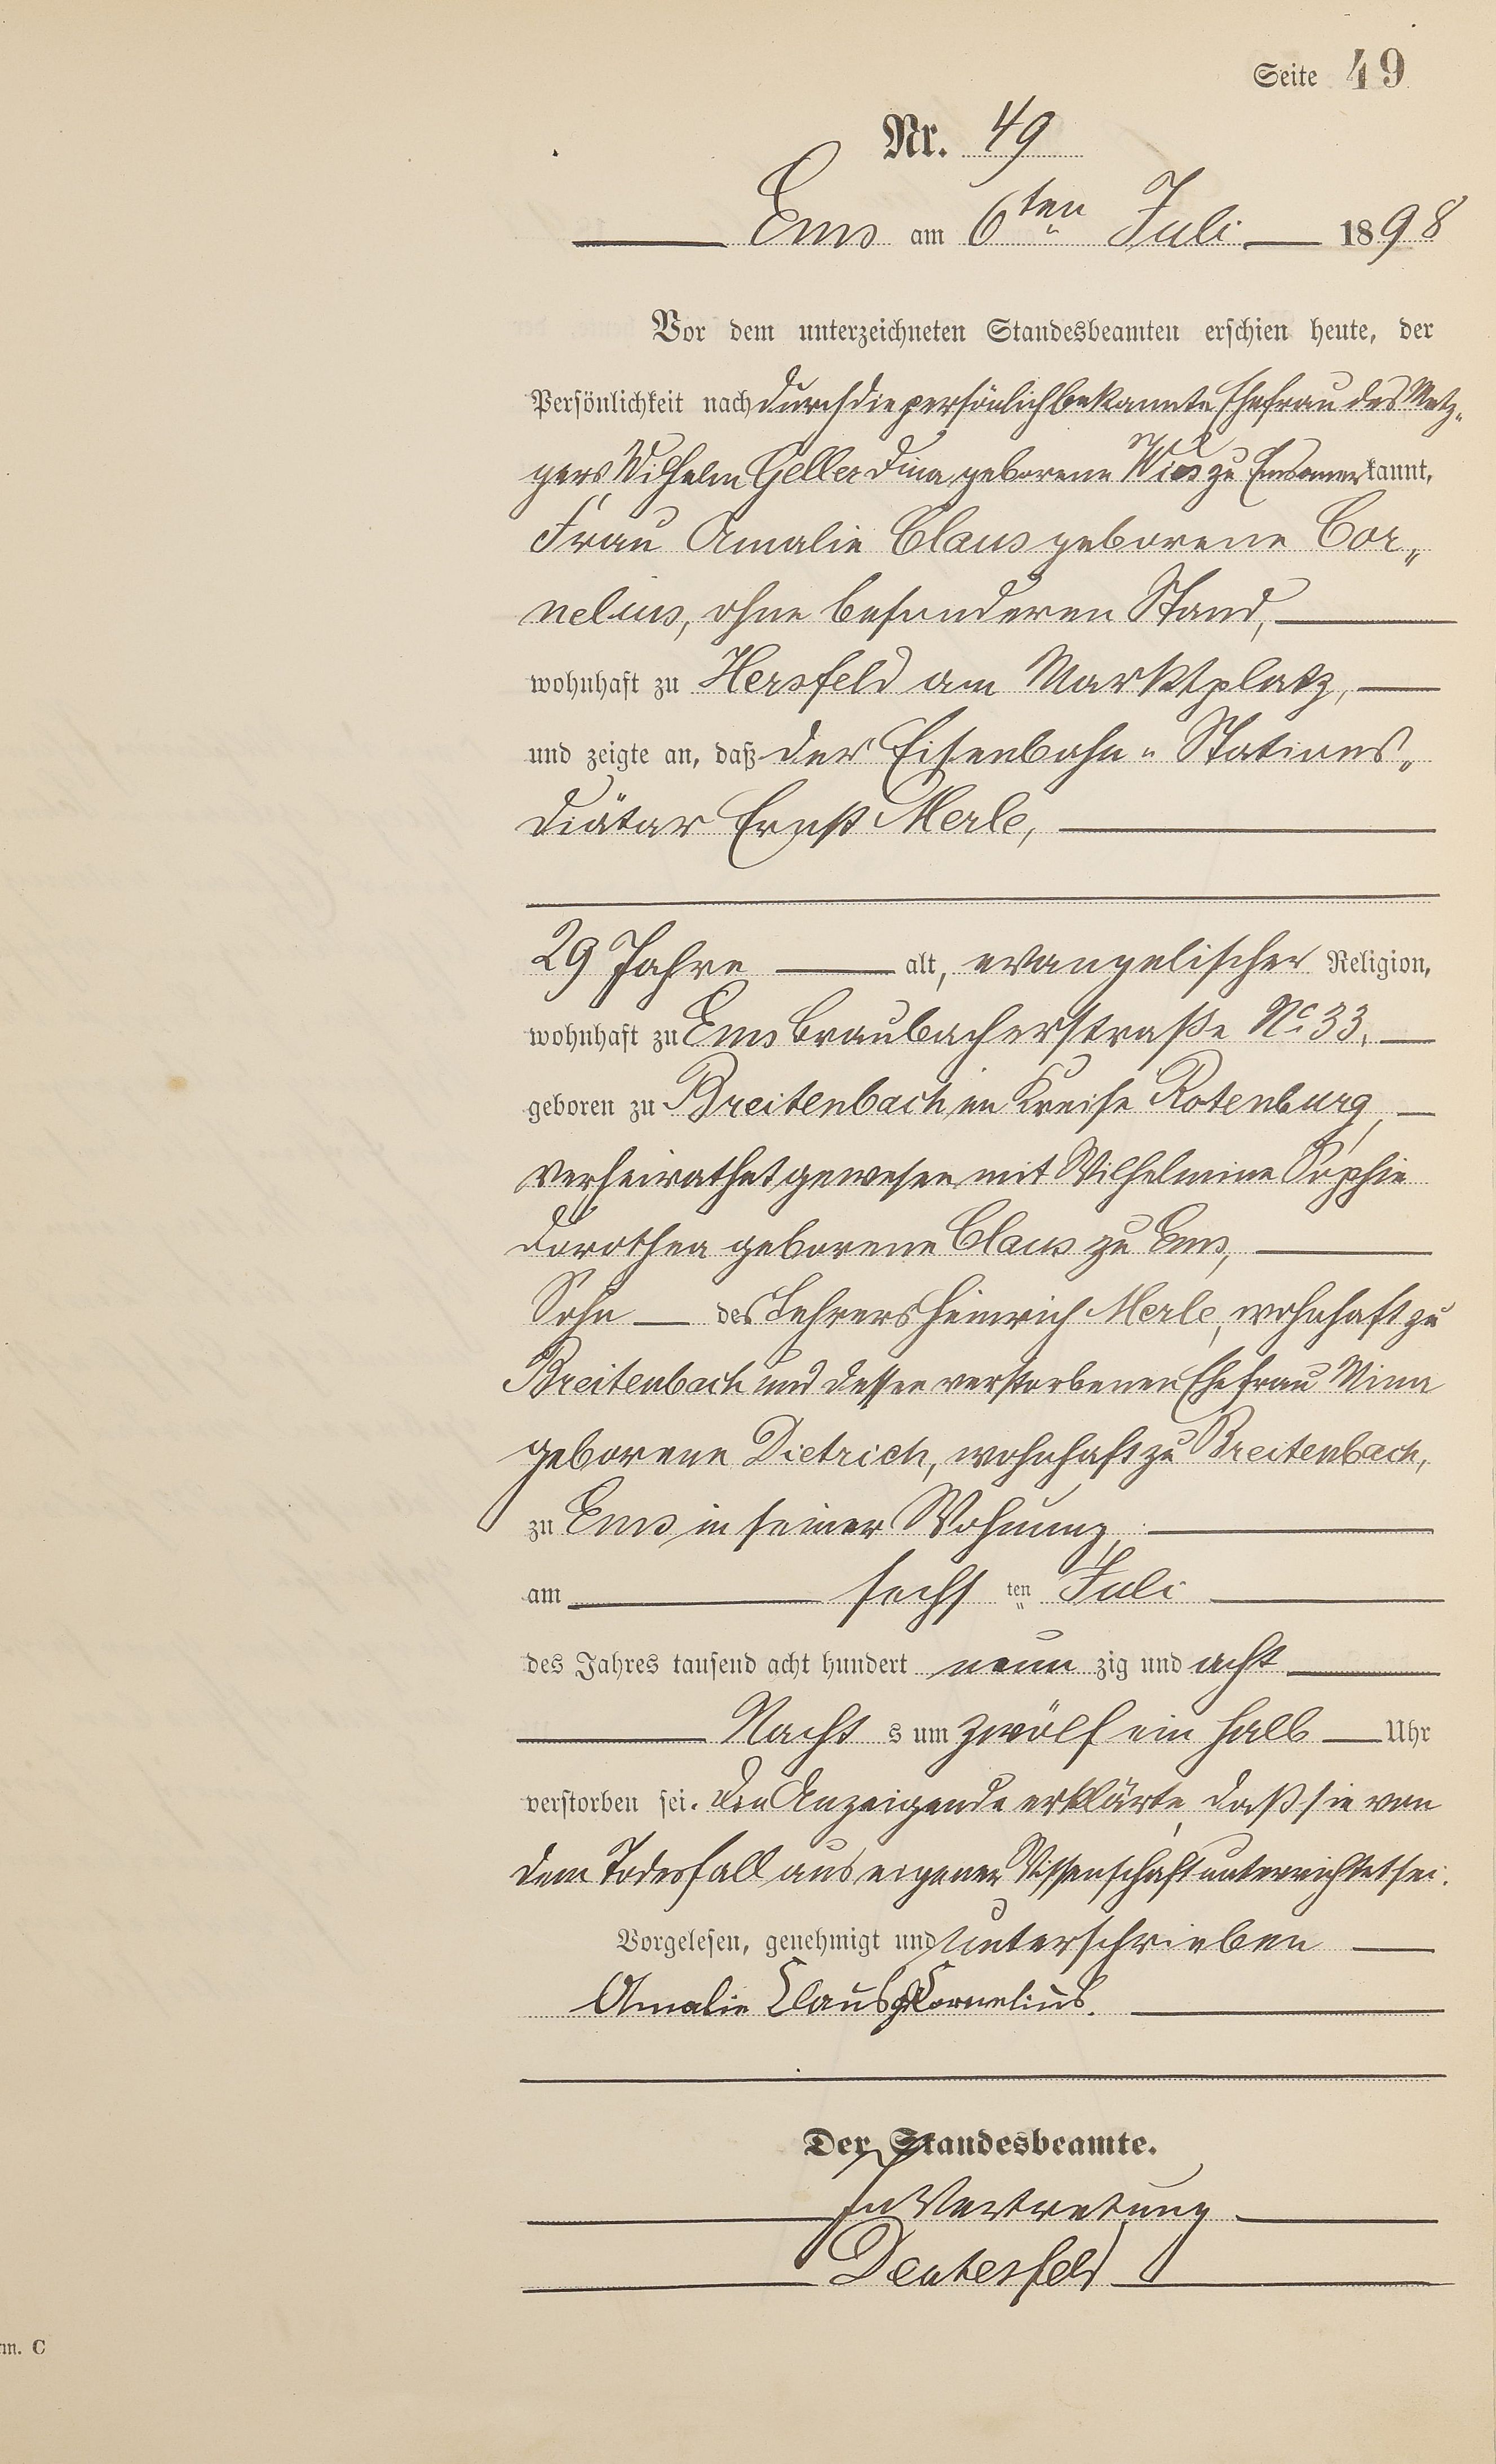 Seite 49
Nr. 49
Ems am 6ten Juli 1898
Vor dem unterzeichneten Standesbeamten erschien heute, der
Persönlichkeit nach durch die persönlich bekannte Ehefrau des Metz-
gers Wilhelm Geller Dina geborene zu Ems anerkannt,
Frau Amalie Claus geborene Cor-
nelius, ohne besonderen Stand,
wohnhaft zu Hersfeld am Marktplatz,
und zeigte an, daß der Eisenbahn-Stations-
diätar Ernst Merle,
29 Jahre alt, evangelischer Religion,
wohnhaft zu Ems Braubacherstraße No 33,
geboren zu Breitenbach im Kreise Rotenburg,
verheirathet gewesen mit Wilhelmine Sophie
Dorothea geborene Claus zu Ems,
Sohn des Lehrers Heinrich Merle, wohnhaft zu
Breitenbach und dessen verstorbenen Ehefrau Mina
geborene Dietrich, wohnhaft zu Breitenbach,
zu Ems in seiner Wohnung,
am sechs ten Juli
des Jahres tausend acht hundert neun zig und acht
Nacht s um zwölf ein halb Uhr
verstorben sei. Die Anzeigende erklärte, daß sie von
dem Todesfall aus eigener Wissenschaft unterrichtet sei.
Vorgelesen, genehmigt und unterschrieben
Amalie Claus g. Cornelius.
Der Standesbeamte.
In Vertretung
Deutesfeld
m. C